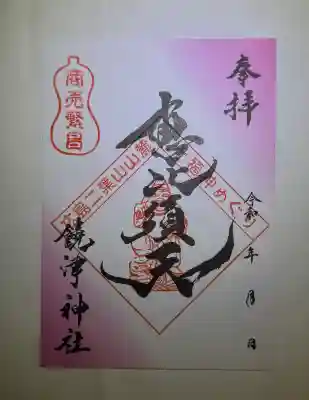 奉拝
令和 年 月 日
恵比須天
二葉山山麓
福神めぐ
商売繁昌
饒津神社